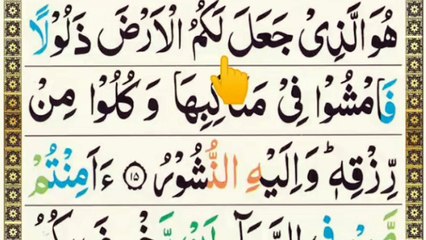 هُوَ الَّذِىْ جَعَلَ لَكُمُ الْاَرْضَ ذَلُوْلًا
فَامْشُوْا فِىْ مَنَاكِبِهَا وَ كُلُوْا مِنْ
رِّزْقِهٖؕ وَ اِلَيْهِ النُّشُوْرُ ۝۱۵ ءَاَمِنْتُمْ